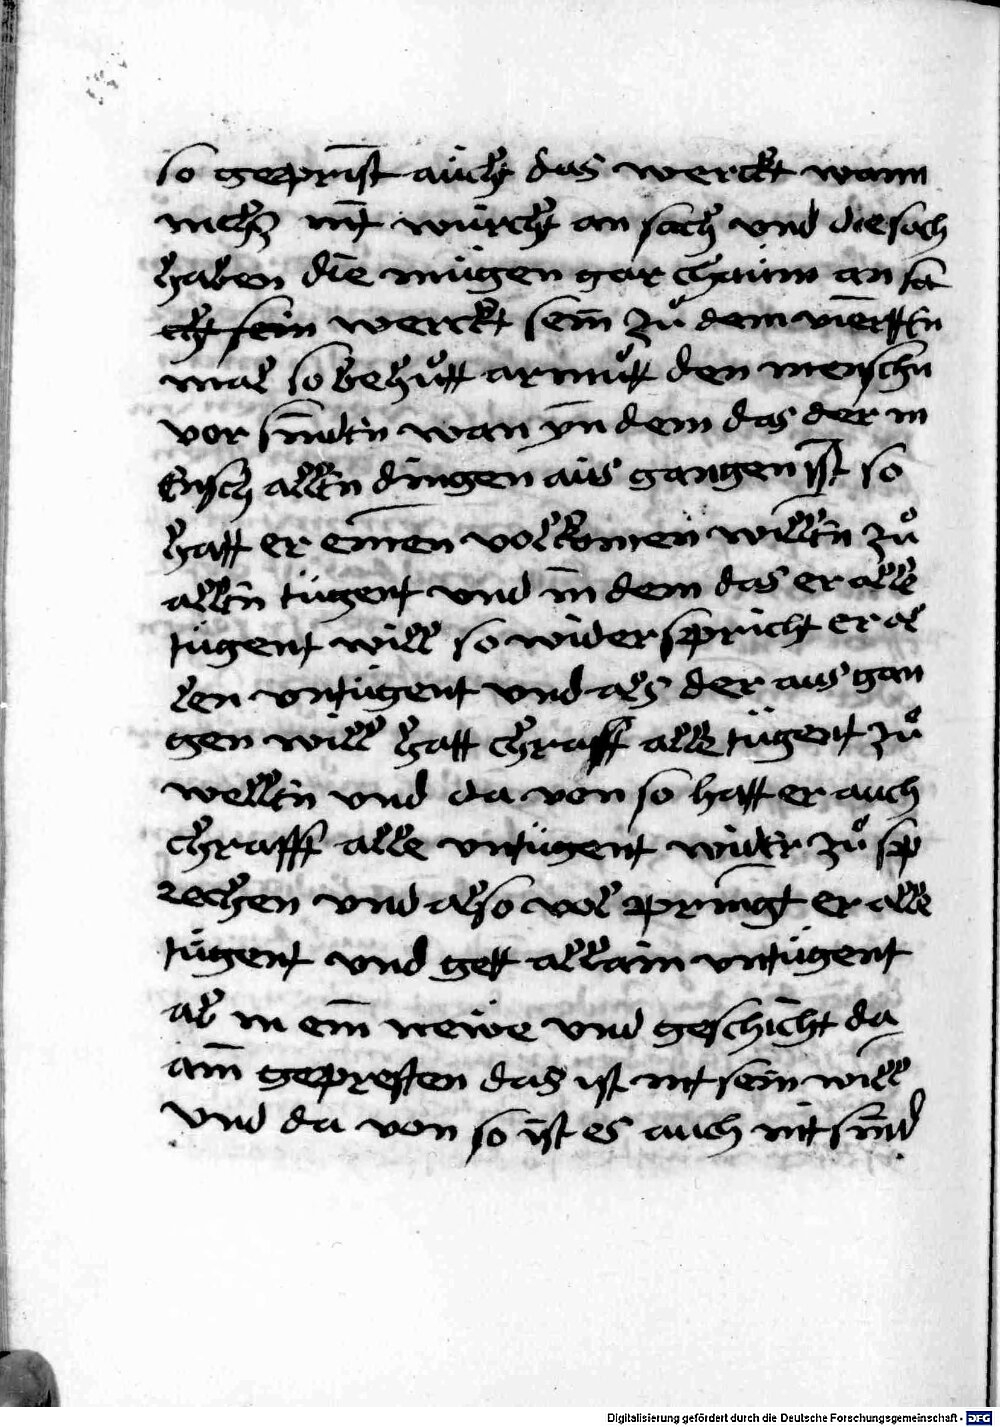 so geprist auch das werckt wann
nichs nit würcht an sach und die sach
haben die mügen gar chaum an sa
ch sein werckt sein zů dem vierttn
mal so behůtt armůtt den menschn
vor sündtn wan yn dem das der m
ensch alltn dingen aus gangen ist so
hatt er einen volkomen willtn zů
alltn tügent und in dem das er alle
tügent will so widerspricht er al
len untügent und als der aus gan
gen will hatt chrafft alle tügent zů
welltn und da von so hatt er auch
chrafft alle untügent widtr zů sp
rechen und also volpringt er alle
tügent und gett allain untügent
ab in ein newe und geschicht da
ain geprestn das ist nit sein will
und da von so ist es auch nit sünd
Digitalisierung gefördert durch die Deutsche Forschungsgemeinschaft - DFG